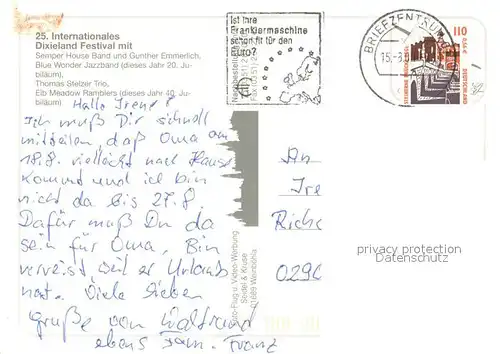 25. Internationales
Dixieland Festival mit
Semper House Band und Gunther Emmerlich,
Blue Wonder Jazzband (dieses Jahr 20. Ju-
biläum),
Thomas Stelzer Trio,
Elb Meadow Ramblers (dieses Jahr 40. Ju-
biläum)
Hallo Irene!
Ich muß Dir schnell
mitteilen, daß Oma am
18.8. vielleicht nach Hause
kommt und ich bin
nicht da bis 27.8.
Dafür muß Du da
sein für Oma, Bin
verreist, weil er Urlaub
hat. Viele liebe
grüße von Waltraud
ebens Fam. Franz
Ist Ihre
Frankiermaschine
schon fit für den
Euro?
BRIEFZENTRUM
110
0,56 €
DEUTSCHLAND
An
Ire
Riche
0290
privacy protection
Datenschutz
Foto-Flug u. Video-Werbung
Seidel & Kruse
01689 Weinböhla